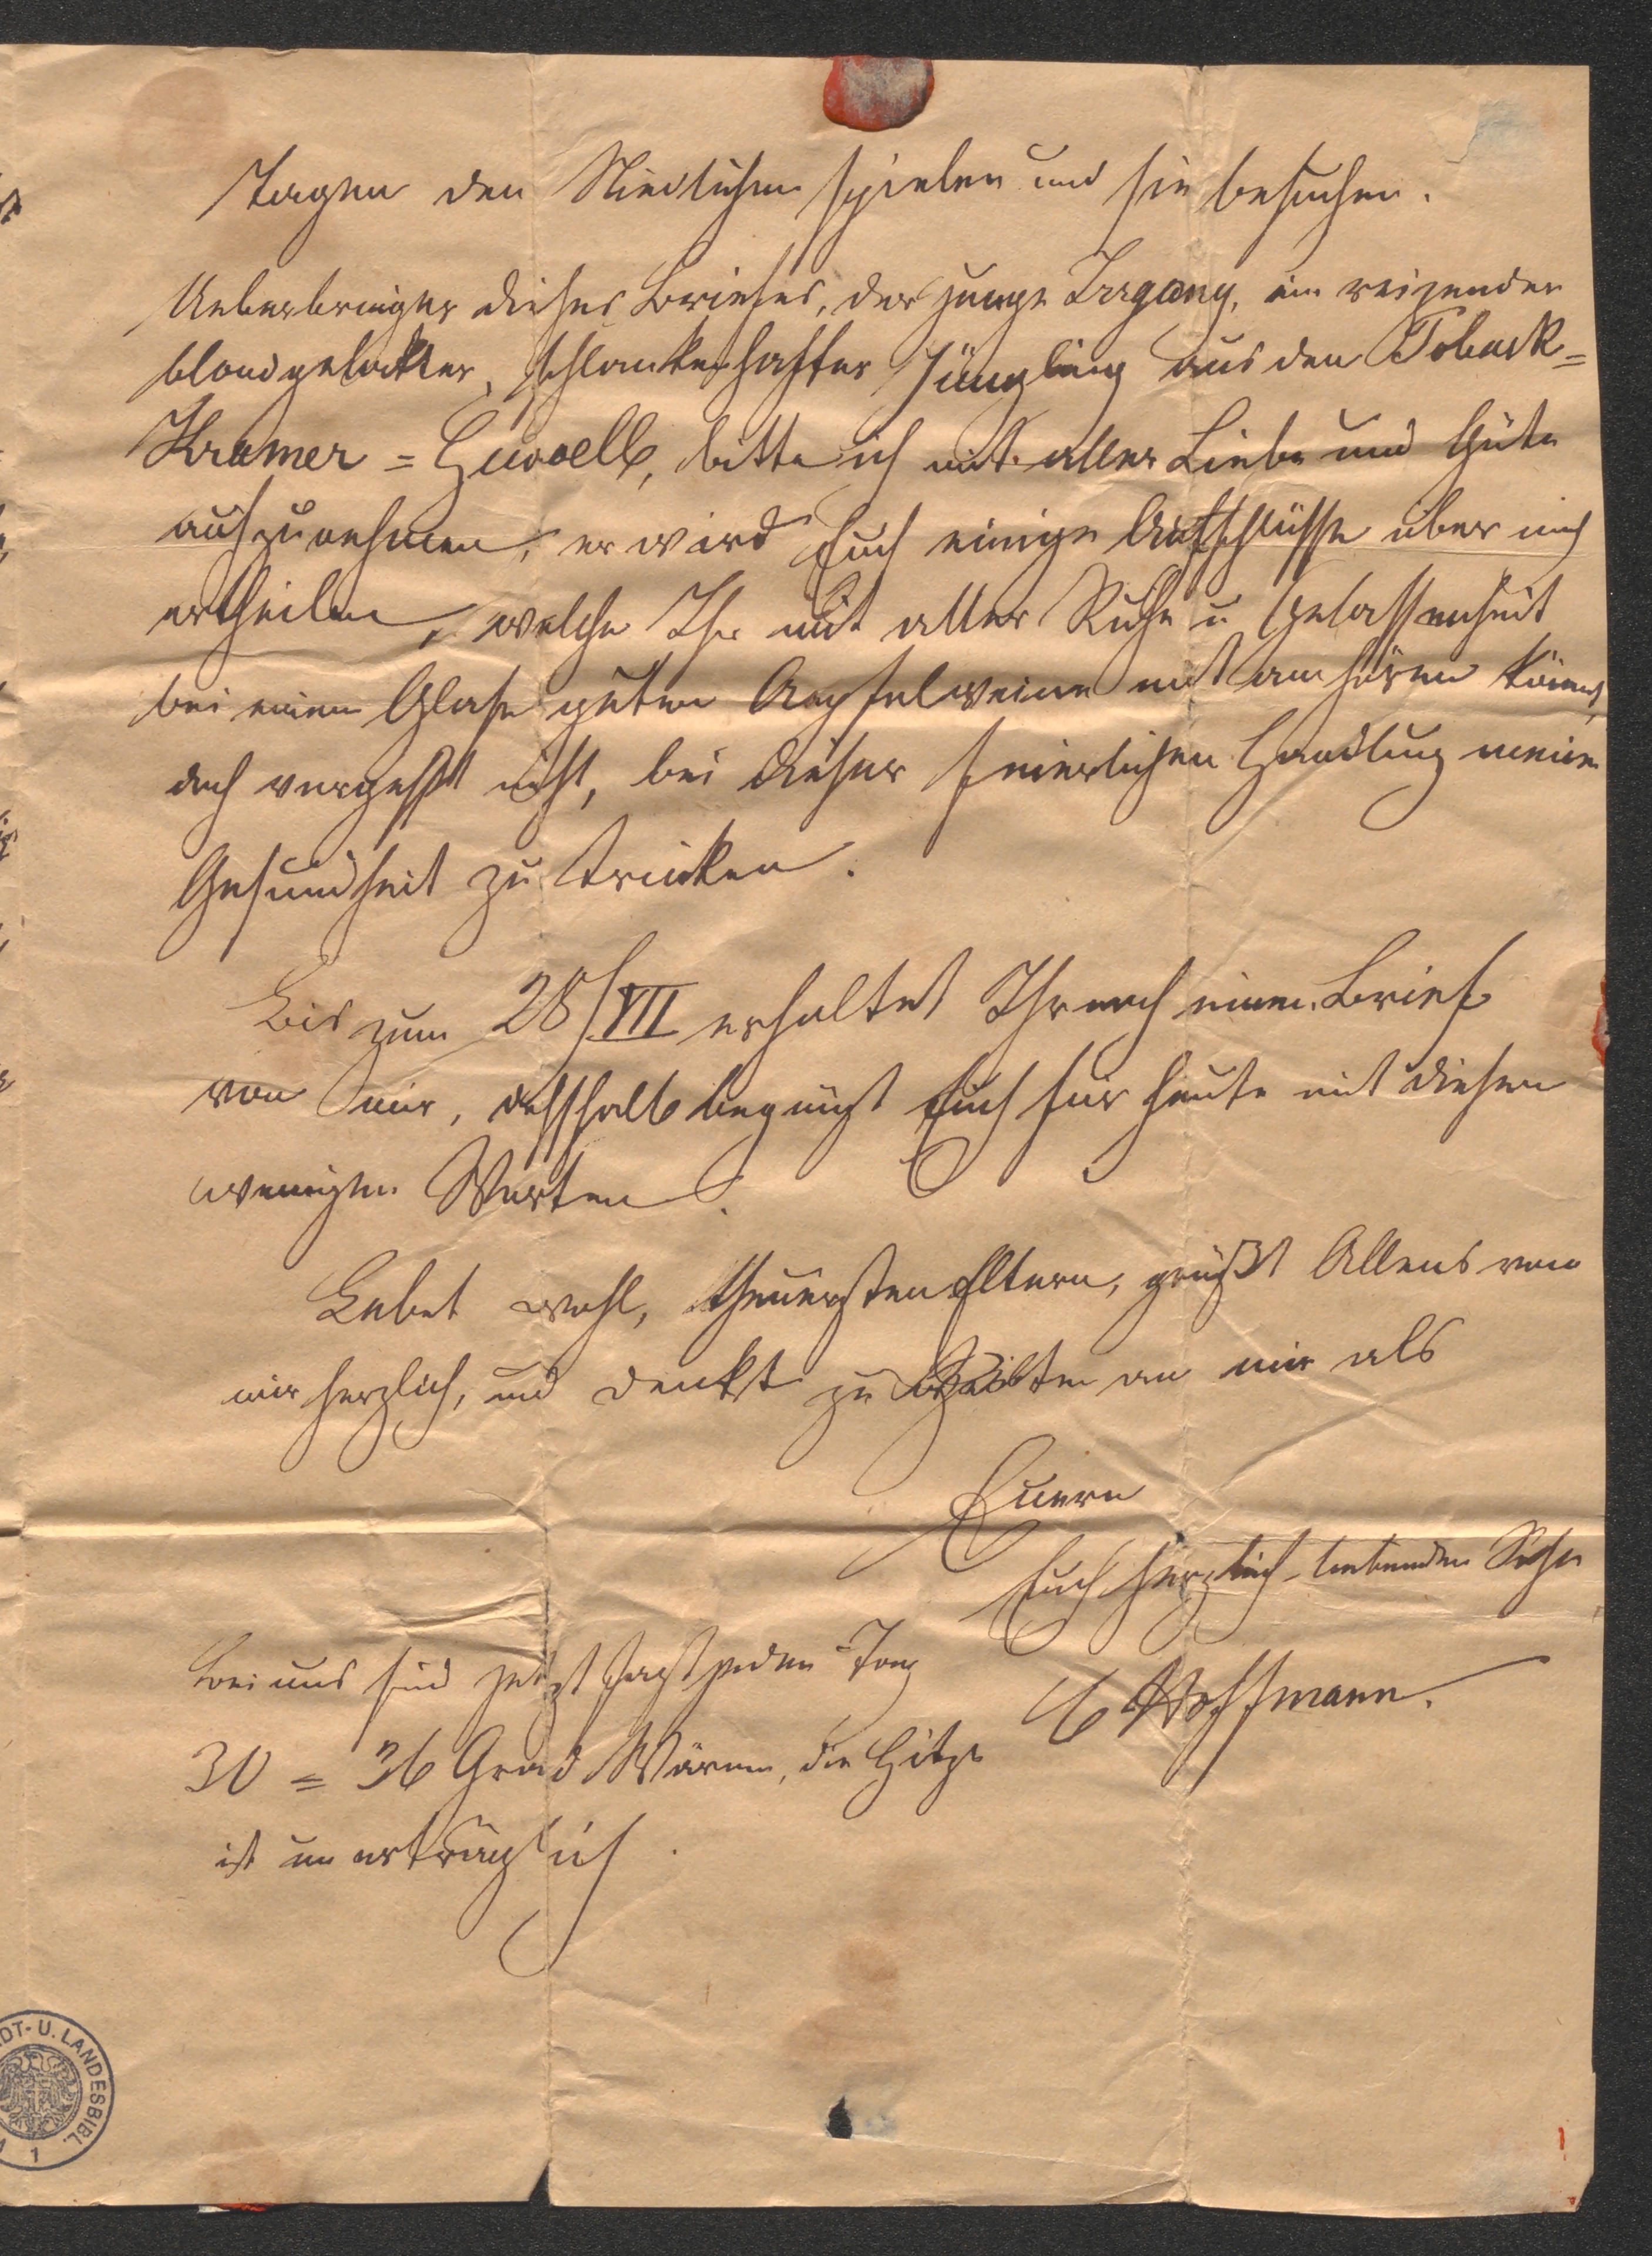 Tagen den Niedlichen spielen und sie besuchen.
Ueberbringer dieses Briefes, der junge Irrgang, ein reizender
blondgelockter, schlankerhafter Jüngling aus den Toback=
Kramer = Gewoelb, bitte ich mit aller Liebe und Güte
aufzunehmen, er wird Euch einige Aufschlüsse über mich
ertheilen, welche Ihr mit aller Ruhe u Gelassenheit
bei einem Glase guten Aepfelweine mit anhören könnt,
doch vergeßt nicht, bei dieser feierlichen Handlung meine
Gesundheit zu trinken.
Bis zum 28/VII erhaltet Ihr noch einen Brief
von mir, desshalb begnügt Euch für heute mit diesen
wenigen Worten.
Lebet wohl, theuersten Eltern, grüßt Allens von
mir herzlich, und denkt zu Zeiten an mir als
Euern
Euch herzlich liebenden Sohn
E Hoffmann.
Bei uns sind jetzt fast jeden Tag
30 = 36 Grad Wärme, die Hitze
ist unerträglich.
DT- U. LANDESBIBL.
1